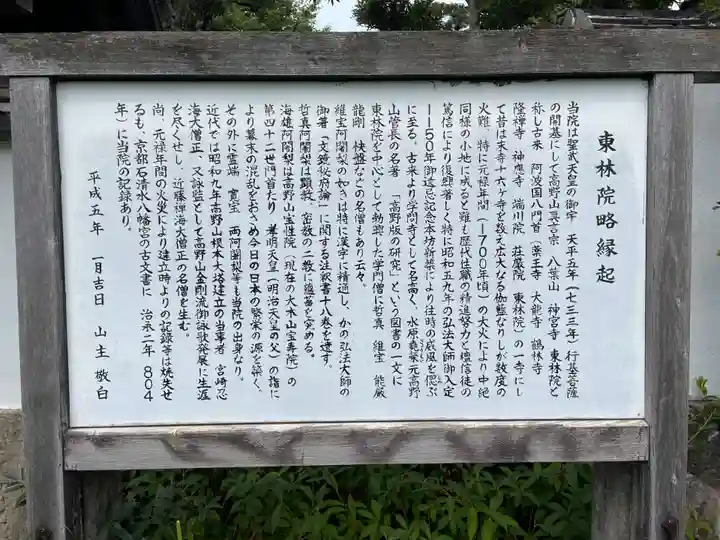 東林院略縁起
当院は聖武天皇の御宇 天平五年(七三三年)行基菩薩
の開基にして高野山真言宗 八葉山 神宮寺 東林院と
称し古来 阿波国八門首(薬王寺 大龍寺 鶴林寺
隆禅寺 神應寺 端川院 荘厳院 東林院)の一寺にし
て昔は末寺十六ヶ寺を数え広大なる伽藍なりしが数度の
火難、特に元禄年間(一700年頃)の大火により中絶
同様の小地に成ると雖も歴代住職の精進努力と壇信徒の
篤信により復興著しく特に昭和五九年の弘法大師御入定
一一50年御遠忌記念本坊新築により往時の威風を偲ぶ
に至る。古来より学問寺としてる高く、水原堯榮元高野
山管長の名著 「高野版の研究」という図書の一文に
東林院を中心として勃興した学門僧に哲真 維宝 能厳
龍剛 快盤などの名僧もあり云々。
維宝阿闍梨の如きは特に漢字に精通し、かの弘法大師の
御著「文鏡秘府論」に関する注釈書十八巻を遺す。
哲真阿闍梨は顕教、密教の二教に蘊蓄を究める。
海雄阿闍梨は高野山宝性院(現在の大本山宝寿院)の
第四十二世門首たり 孝明天皇(明治天皇の父)の詣に
より幕末の混乱をおさめ今日の日本の繁栄の源を築く。
その外に霊端 寛宝 両阿闍梨等も当院の出身なり。
近代では昭和九年高野山根本大塔建立の当事者 宮崎忍
海大僧正、又詠監として高野山金剛流御詠歌発展に生涯
を尽くせし 近藤禅海大僧正の名僧を生む。
尚、元禄年間の火災により建立時よりの記録等は焼失せ
るも、京都石清水八幡宮の古文書に 治承二年 804
年)に当院の記録あり。
平成五年 一月吉日 山主 敬白